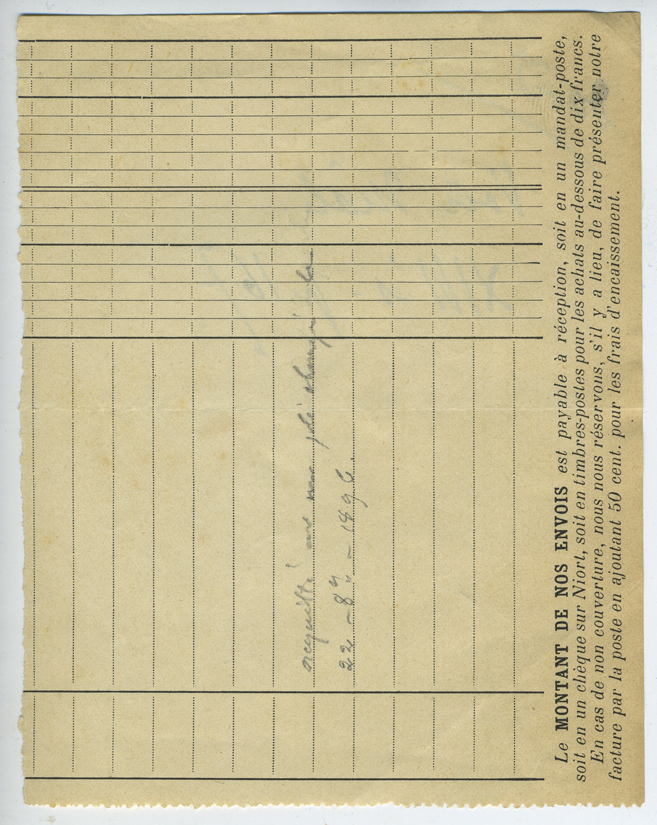 acquitté
22 - 8bre - 1896.
Le MONTANT DE NOS ENVOIS est payable à réception, soit en un mandat-poste,
soit en un chèque sur Niort, soit en timbres-postes pour les achats au-dessous de dix francs.
En cas de non couverture, nous nous réservons, s'il y a lieu, de faire présenter notre
facture par la poste en ajoutant 50 cent. pour les frais d'encaissement.